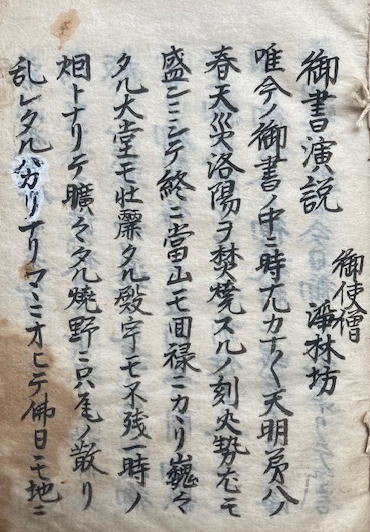 御書演説
御使僧
浄林坊
唯今ノ御書ノ中ニ時尤カナ〱天明第八ノ
春天災洛陽ヲ焚焼スルノ刻火勢尤モ
盛ンニシテ終ニ當山モ回禄ニカヽリ巍々
タル大堂モ壮麗タル殿宇モ不残一時ノ
烟トナリテ曠々タル焼野ニ只瓦ノ散リ
乱レタルハカリ
ナリマニオヒテ佛日モ地ニ